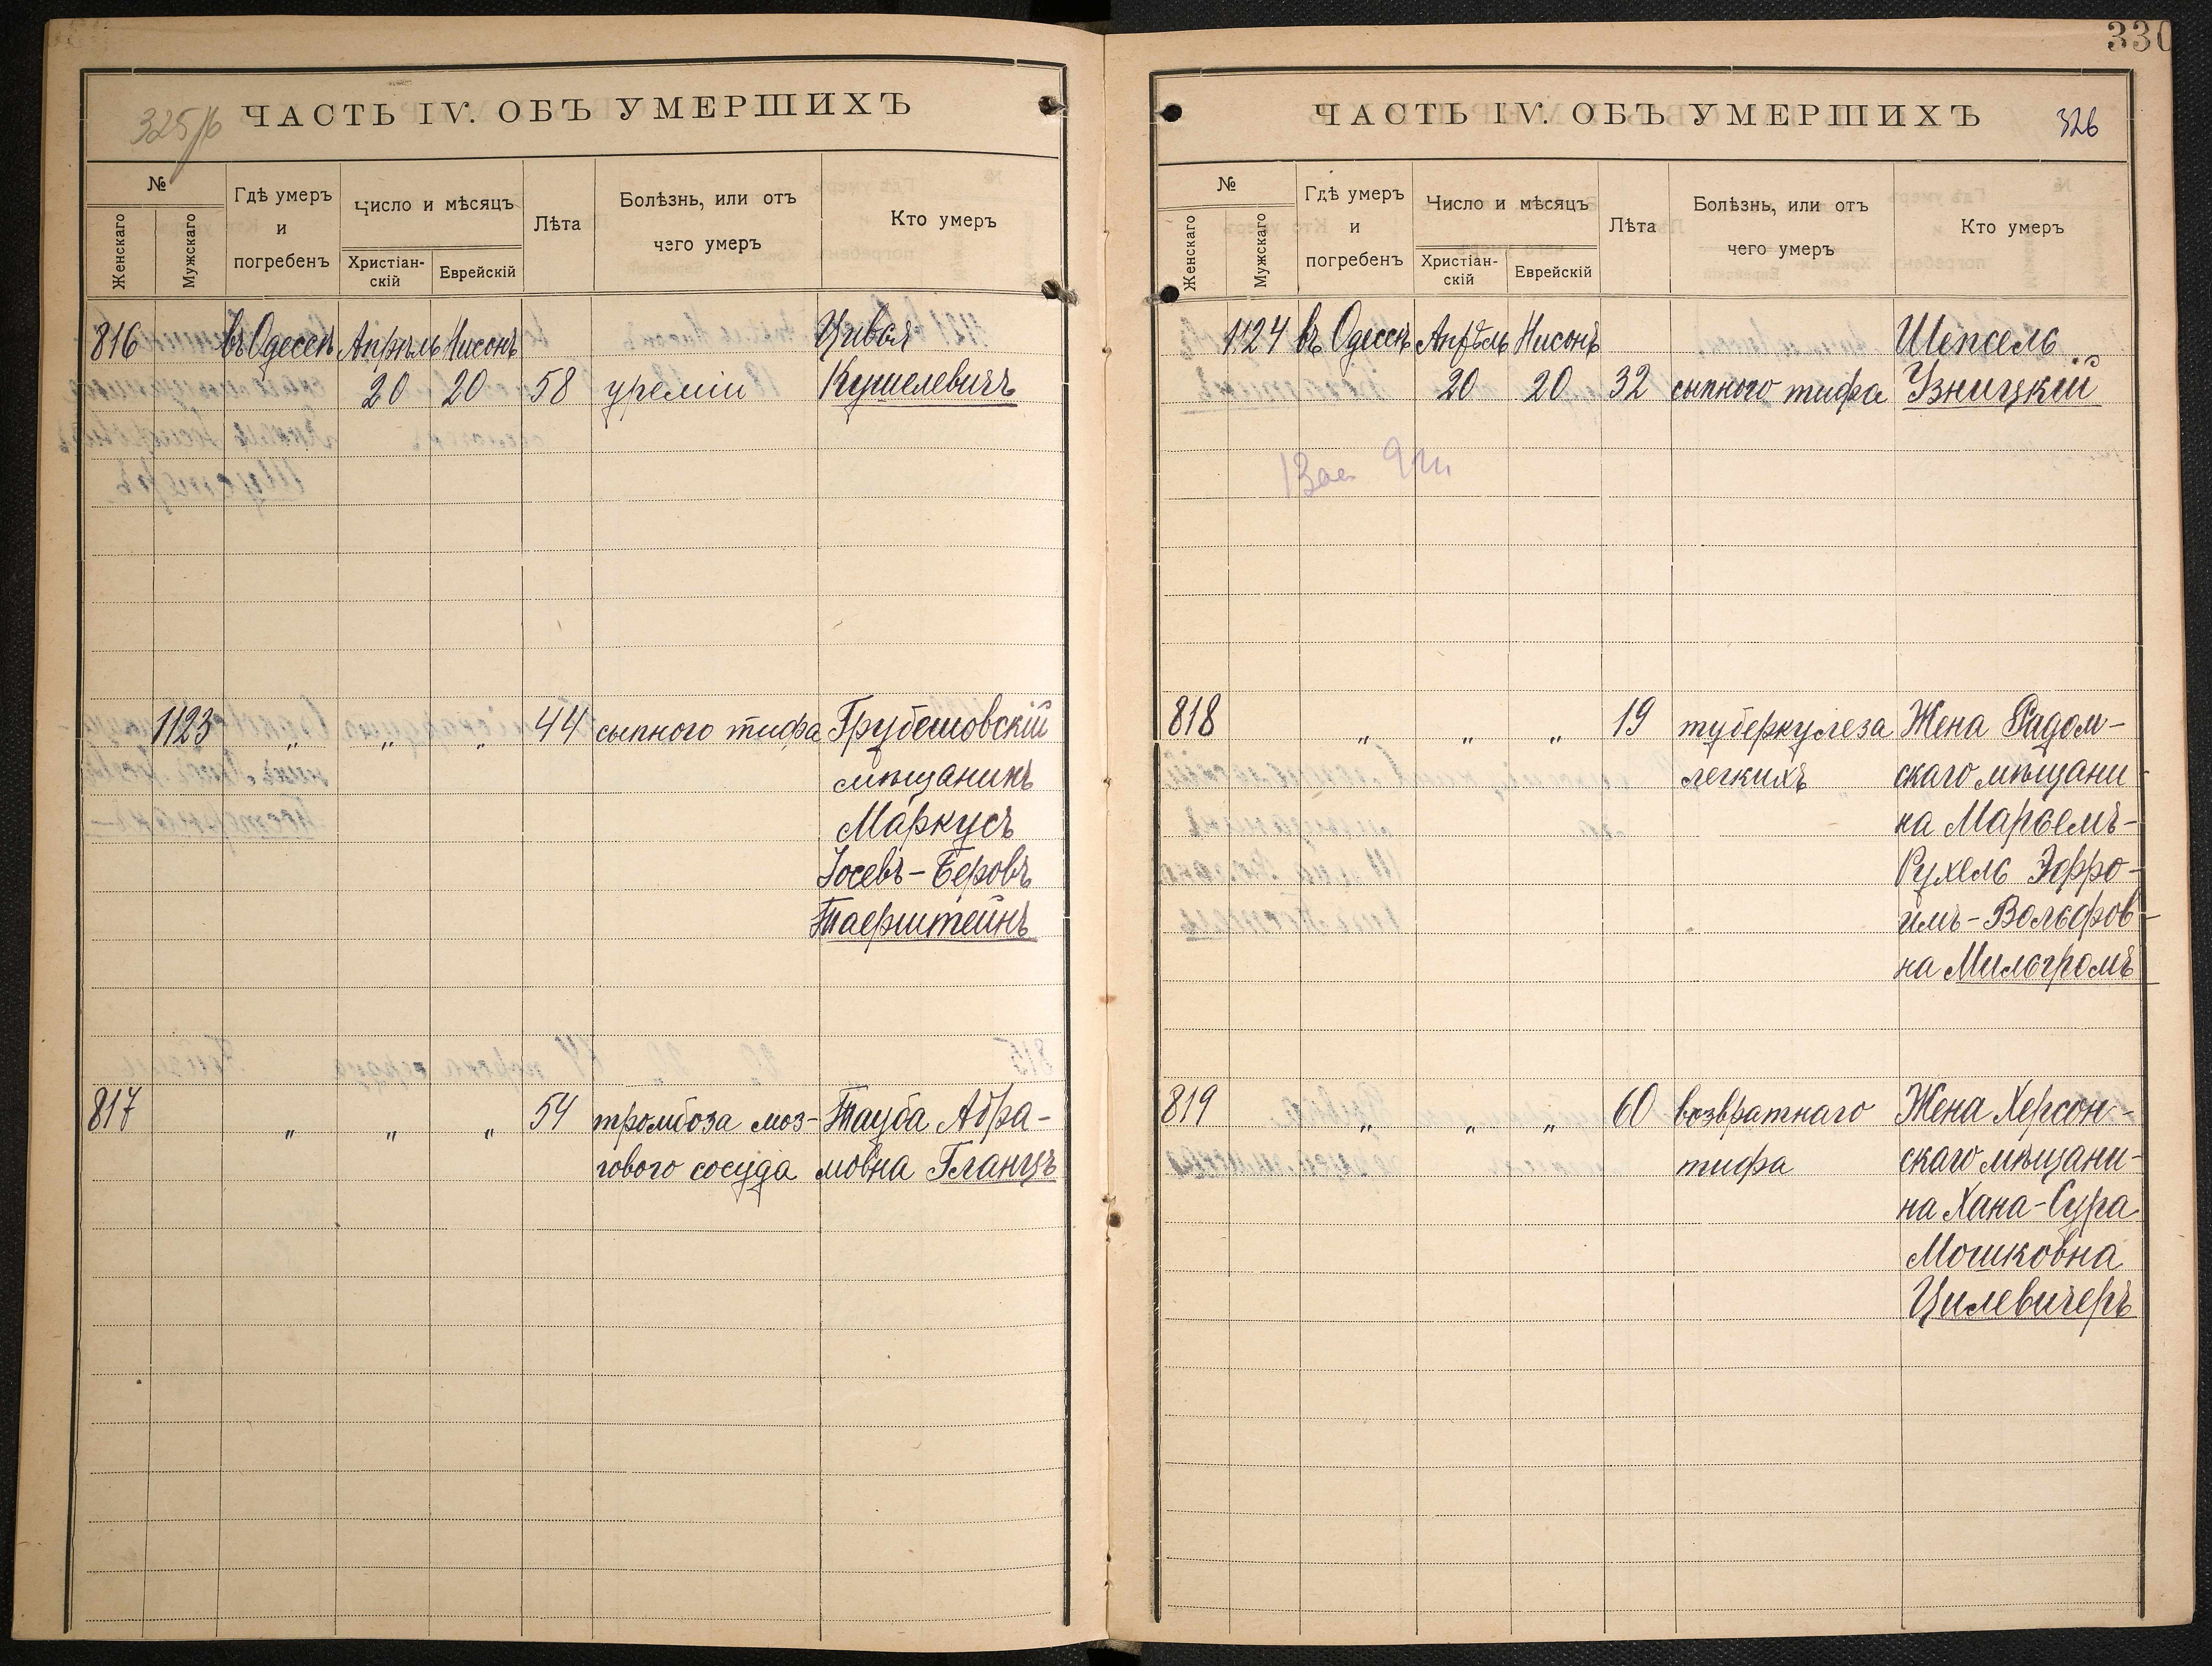 325/б
ЧАСТЬ IV. ОБЪ УМЕРШИХЪ
№
Женскаго
Мужскаго
Гдѣ умеръ и погребенъ
Число и мѣсяцъ
Христіан-
скій
Еврейскій
Лѣта
Болѣзнь, или отъ
чего умеръ
Кто умеръ
816 въ Одессѣ Апрѣль Нисонъ Цивья
20 20 58 уреміи Кушелевичъ
1123 „ „ „ 44 сыпного тифа Грубешовскій
мѣщанинъ
Маркусъ
Іосевъ-Беровъ
Таерштейнъ
817 „ „ „ 54 тромбоза моз- Тауба Абра-
гового сосуда мовна Гланцъ
330
ЧАСТЬ IV. ОБЪ УМЕРШИХЪ
326
№
Женскаго
Мужскаго
Гдѣ умеръ
и
погребенъ
Число и мѣсяцъ
Христіан-
скій
Еврейскій
Лѣта
Болѣзнь, или отъ
чего умеръ
Кто умеръ
1124 въ Одессѣ Апрѣль Нисонъ Шепсель
20 20 32 сыпного тифа Узницкій
818 „ „ „ 19 туберкулеза Жена Радом-
легкихъ скаго мѣщани-
на Марьемъ-
Рухель Эфро-
имъ-Вольфов-
на Мильгромъ
819 „ „ „ 60 возвратнаго Жена Херсон-
тифа скаго мѣщани-
на Хана-Сура
Мошковна
Цилевичеръ